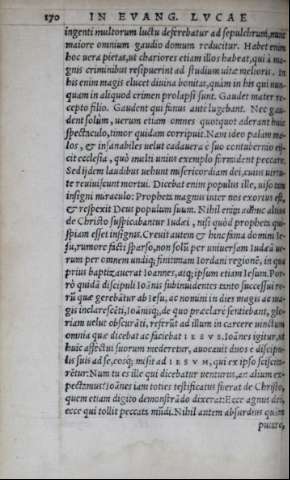 170 IN EVANG. LVCAE
ingenti multorum luctu deferebatur ad sepulchrum, nunc
maiore omnium gaudio domum reducitur. Habet enim
hoc uera pietas, ut chariores etiam illos habeat, qui à ma⸗
gnis criminibus resipuerint ad studium uitæ melioris. In
his enim magis elucet diuina bonitas, quàm in his qui nun⸗
quam in aliquod crimen prolapsi sunt. Gaudet mater re⸗
cepto filio. Gaudent qui funus antè lugebant. Nec gau⸗
dent solùm, uerum etiam omnes quotquot aderant huic
spectaculo, timor quidam corripuit. Nam ideo palàm ma⸗
los, & insanabiles uelut cadauera è suo contubernio eij⸗
cit ecclesia, quò multi unius exemplo formident peccare.
Sed ijdem laudibus uehunt misericordiam dei, cuius uirtu⸗
te reuiuiscunt mortui. Dicebat enim populus ille, uiso tam
insigni miraculo: Propheta magnus inter nos exortus est,
& respexit Deus populum suum. Nihil enim adhuc altius
de Christo suspicabantur Iudæi, nisi quòd propheta qui⸗
spiam esset insignis. Creuit autem & hinc fama domini Ie⸗
su, rumore facti sparso, non solū per uniuersam Iudæā ue⸗
rum per omnem undiq; finitimam Iordani regionē, in qua
prius baptizauerat Ioannes, atq; ipsum etiam Iesum. Por⸗
rò quũdã discipuli Ioãnis subinuidentes tanto successui re⸗
rũ quæ gerebãtur ab Iesu, ac nomini in dies magis ac ma⸗
gis inclarescēti, Ioãnisq; de quo præclarè sentiebant, glo⸗
riam uelut obscurãti, referũt ad illum in carcere uinctum
omnia quæ dicebat ac faciebat IESVS. Ioãnes igitur, ut
huic affectui suorum mederetur, auocauit duos è discipu⸗
lis suis ad se, eosq; misit ad IESVM, qui ex ipso sciscita⸗
rētur: Num tu es ille qui dicebatur uenturus, an alium ex⸗
pectamus? Ioãnes iam toties testificatus fuerat de Christo,
quem etiam digito demonstrãdo dixerat: Ecce agnus dei,
ecce qui tollit peccata mũdi. Nihil autem absurdius quàm
putare,